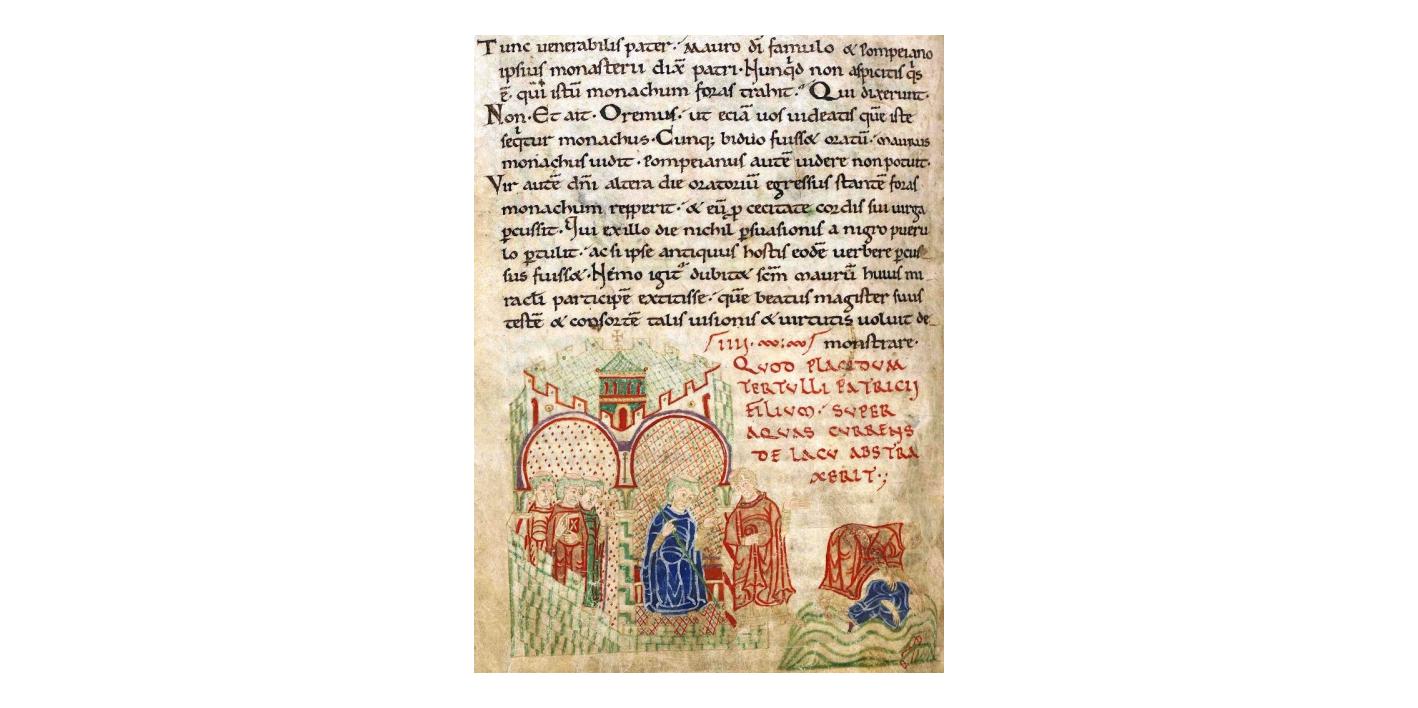 Tunc uenerabilis pater. Mauro dī famulo & Pompeiano
ipsius monasterii dix̄ patri. Nunqd non aspicitis qs
ē. qui istū monachum foras trahit. Qui dixerunt.
Non. Et ait. Oremus. ut eciā uos uideatis quē iste
seqtur monachus. Cunq; biduo fuiss& oratū. maurus
monachus uidit. Pompeianus autē uidere non potuit.
Vir autē dn̄i altera die oratoriū egressus stantē foras
monachum repperit. & eū p cecitate cordis sui uirga
pcussit. Qui ex illo die nichil psuasionis a nigro pueru
lo ptulit. ac si ipse antiquus hostis eodē uerbere pcus
sus fuiss&. Nemo igit dubit& scm̄ maurū huius mi
racli participē extitisse. quē beatus magister suus
testē & consortē talis uisionis & uirtutis uoluit de
monstrare.
QUOD PLACIDUM
TERTULLI PATRICII
FILIUM. SUPER
AQUAS CURRENS
DE LACU ABSTRA
XERIT.;